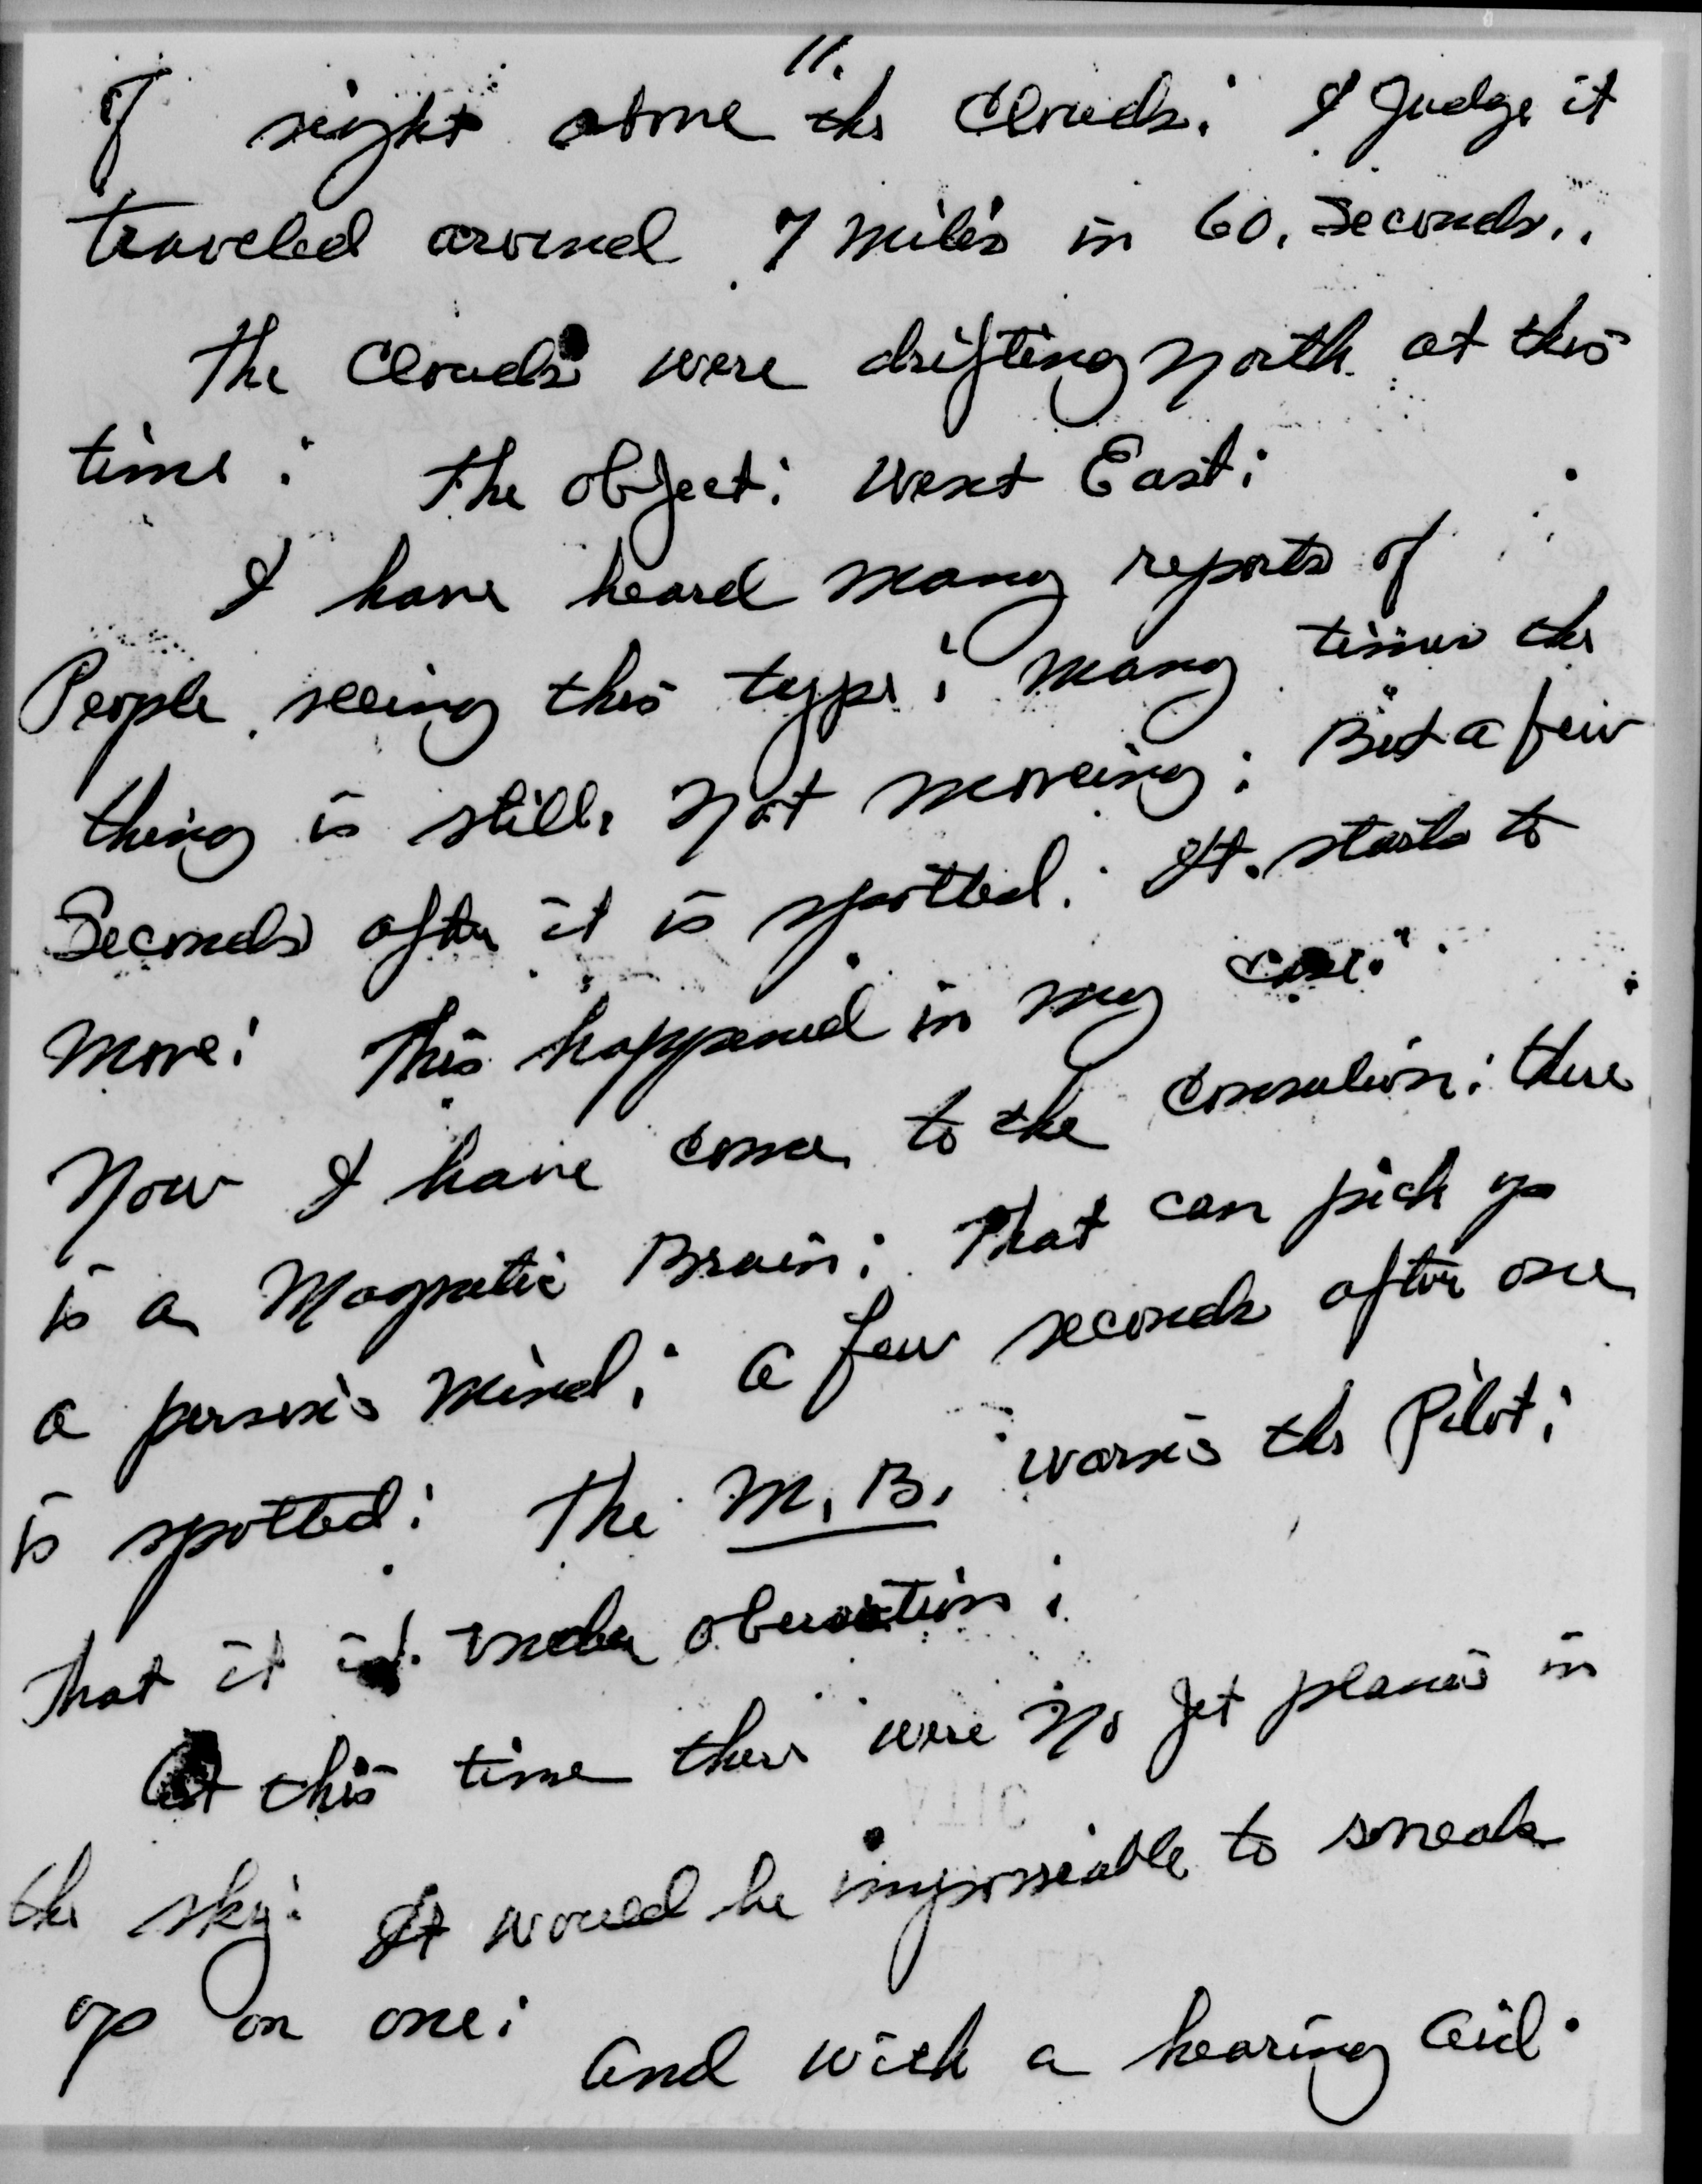 11.
of sight above the Clouds: I Judge it
traveled around 7 miles in 60. Seconds..
The Clouds were drifting North at this
time: The object: went East:
I have heard many reports of
People seeing this type: many times the
thing is still. Not moveing: But a few
Seconds after it is spotted: It. starts to
move: This happened in my case.
Now I have come to the conculion: there
is a Magnetic Brain: That can pick up
a person's mind: a few seconds after one
is spotted: The M. B. warn's the Pilot:
That it is under obersation:
At this time there were no Jet planes in
the sky: It would be impossiable to sneak
up on one: and with a hearing aid.